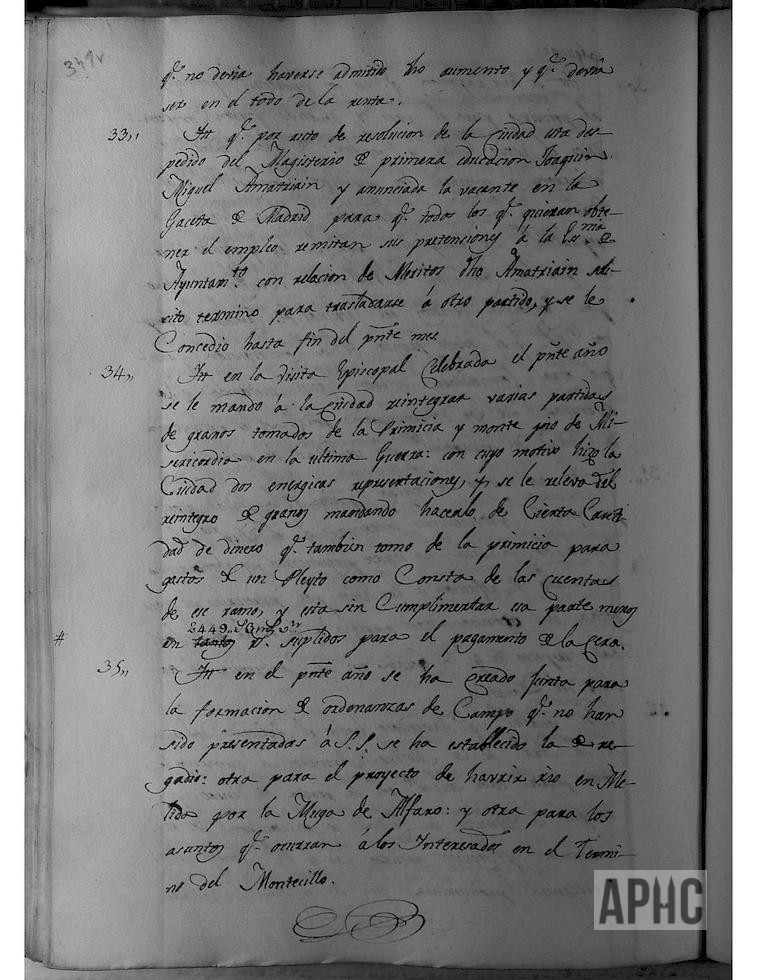 q.e no devia haverse admitido dho aumento y q.e devia
ser en el todo de la renta.
33,, Itt q.e por auto de resolucion de la Ciudad esta des-
pedido del Magisterio de primera educacion Joaquin
Miguel Amatriain y anunciada la vacante en la
Gaceta de Madrid para q.e todos los q.e quieran obte-
ner el empleo remitan sus pretensiones á la Es.ma de
Ayuntam.to con relacion de Meritos dho Amatriain soli-
cito termino para trasladarse á otro partido, y se le
Concedio hasta fin del pnte mes
34,, Itt en la Visita Episcopal Celebrada el pnte año
se le mando á la Ciudad reintegrar varias partidas
de granos tomados de la Primicia y monte pio de Mi-
sericordia en la ultima Guerra: con cuyo motivo hizo la
Ciudad dos energicas representaciones, y se le relevo del
reintegro de granos mandando hacerlo de Cierta Canti-
dad de dinero q.e tambien tomo de la primicia para
gastos de un Pleyto como Consta de las cuentas
de ese ramo, y esta sin Cumplimentar esa parte menos
2449,,
# en tantos suplidos para el pagamento de la Cera.
35,, Itt en el pnte año se ha Creado Junta para
la formacion de ordenanzas de Campo q.e no han
sido presentadas á S.S. se ha establecido la de re-
gadio: otra para el proyecto de havrir rio en Me-
lida por la Muga de Alfaro: y otra para los
asuntos q.e ocurran á los Interesados en el Termi-
no del Montecillo.
APHC